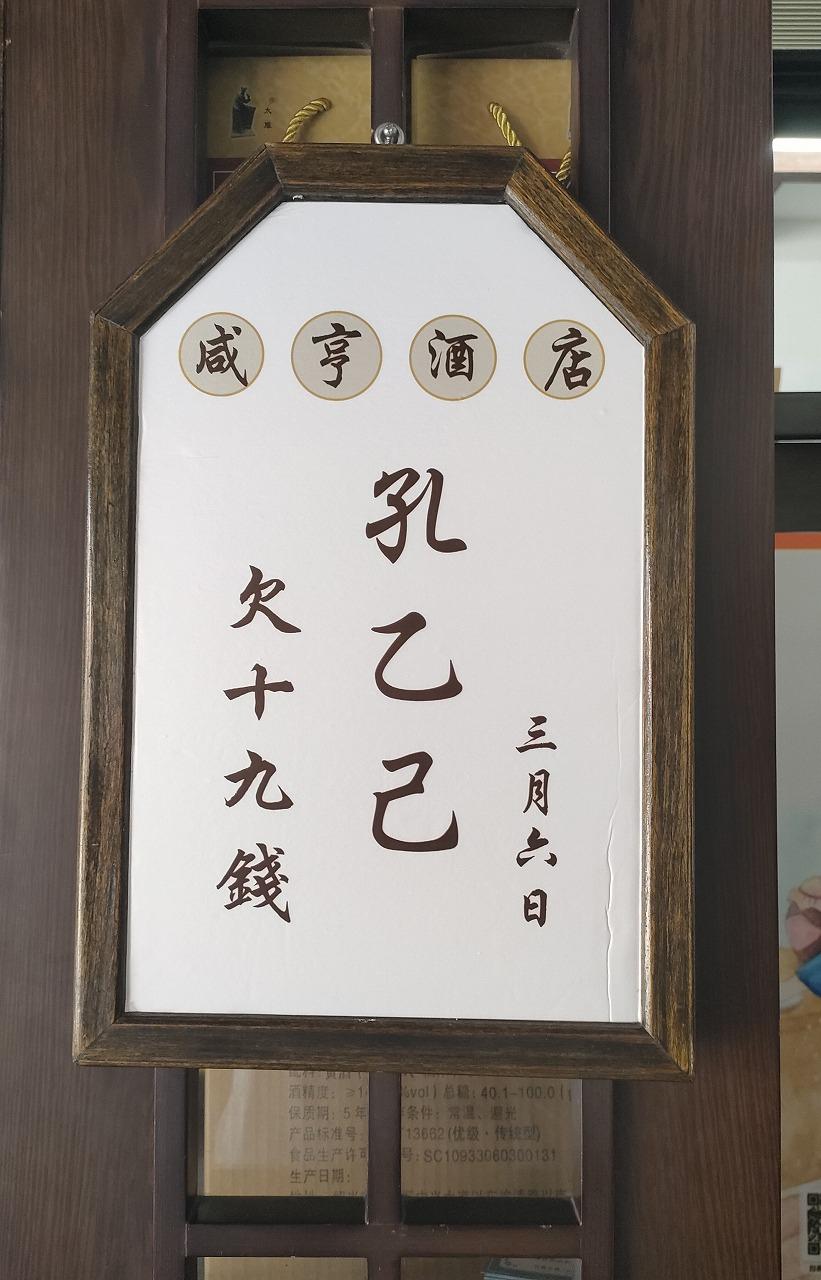 咸亨酒店
三月六日
孔乙己
欠十九錢
太雕
酒精度：≥1 %vol) 总糖：40.1-100.0(
保质期：5年 条件：常温、避光
产品标准号： T13662(优级·传统型)
食品生产许可 号：SC10933060300131
生产日期：